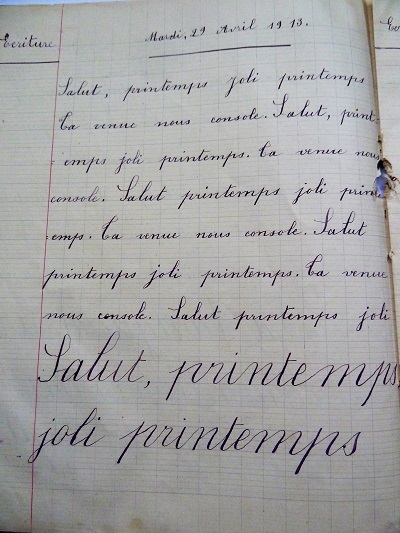 Mardi, 29 Avril 1913.
Ecriture
Salut, printemps joli printemps
Ta venue nous console. Salut, print-
-emps joli printemps. Ta venue nous
console. Salut printemps joli print
-emps. Ta venue nous console. Salut
printemps joli printemps. Ta venue
nous console. Salut printemps joli
Salut, printemps
joli printemps